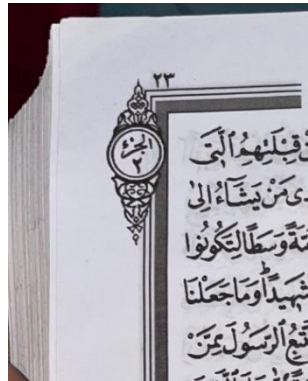 ٢٣
الجزء
٢
قِبْلَتِهِمُ الَّتِى
مَنْ يَشَآءُ اِلٰى
وَسَطًا لِتَكُونُوا
شَهِيدًا وَمَا جَعَلْنَا
الرَّسُولَ مِمَّنْ